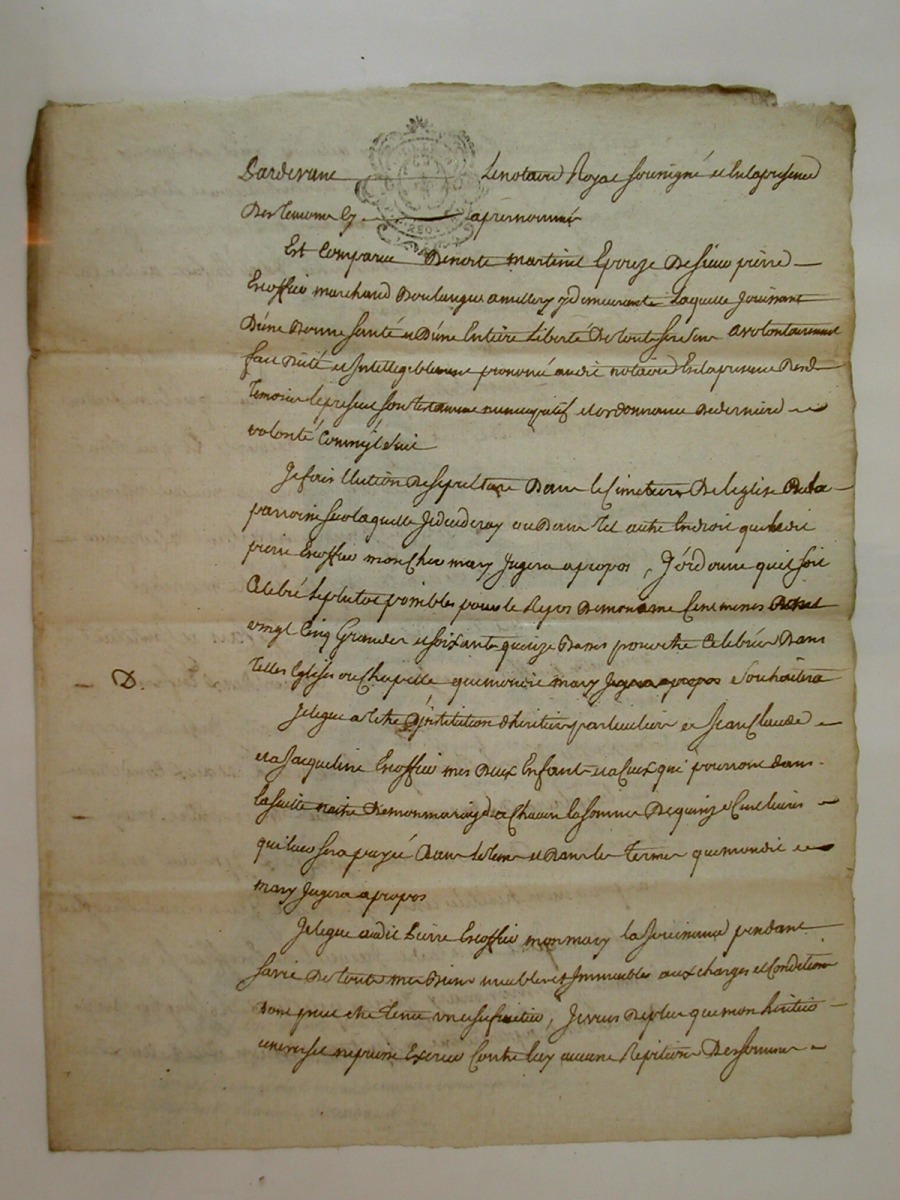 Pardevant Le notaire Royal soussigné et En la presence
Des temoins cy apres nommés
Est Comparue Benoite martinet Epouze De sieur pierre
Escoffier marchand Boulanger a millery y demeurante Laquelle Jouissant
D'une Bonne santé et D'une Entiere Liberté De tous ses sens a volontairement
fait dicté et Intellegiblement prononcé audit notaire En la presence Desd
temoins le present son testament nuncupatif et ordonnance De derniere
volonté Comm'il suit
Je fais Election De sepulture Dans le Cimetiere De l'eglise De la
parroisse sur laquelle Je decederay ou Dans tel autre Endroit que ledit
pierre Escoffier mon Cher mary Jugera a propos, J'ordonne qu'il soit
Celebré le plutot possibles pour le Repos De mon ame Cent messes
vingt Cinq Grandes et soixante quinze Basses pour etre Celebrées Dans
telles Eglises ou Chapelle que mondit mary Souhaitera
D.
Je legue a titre D'institution d'heritiers particuliers a Jean Claude
et a Jacqueline Escoffier mes Deux Enfants et a Ceux qui pourront dans
la suite naitre De mon mariage a Chacun la somme De quinze Cent livres
qui leur sera payée Dans le tems et Dans les termes que mondit
mary Jugera a propos
Je legue audit Pierre Escoffier mon mary la Jouissance pendant
sa vie De touts mes Biens meubles et Immeubles aux charges et Condition
Dont peut etre tenu un usufruitier, Je veux De plus que mon heritier
universel ne puisse Exercer Contre luy aucune Repetition Des sommes